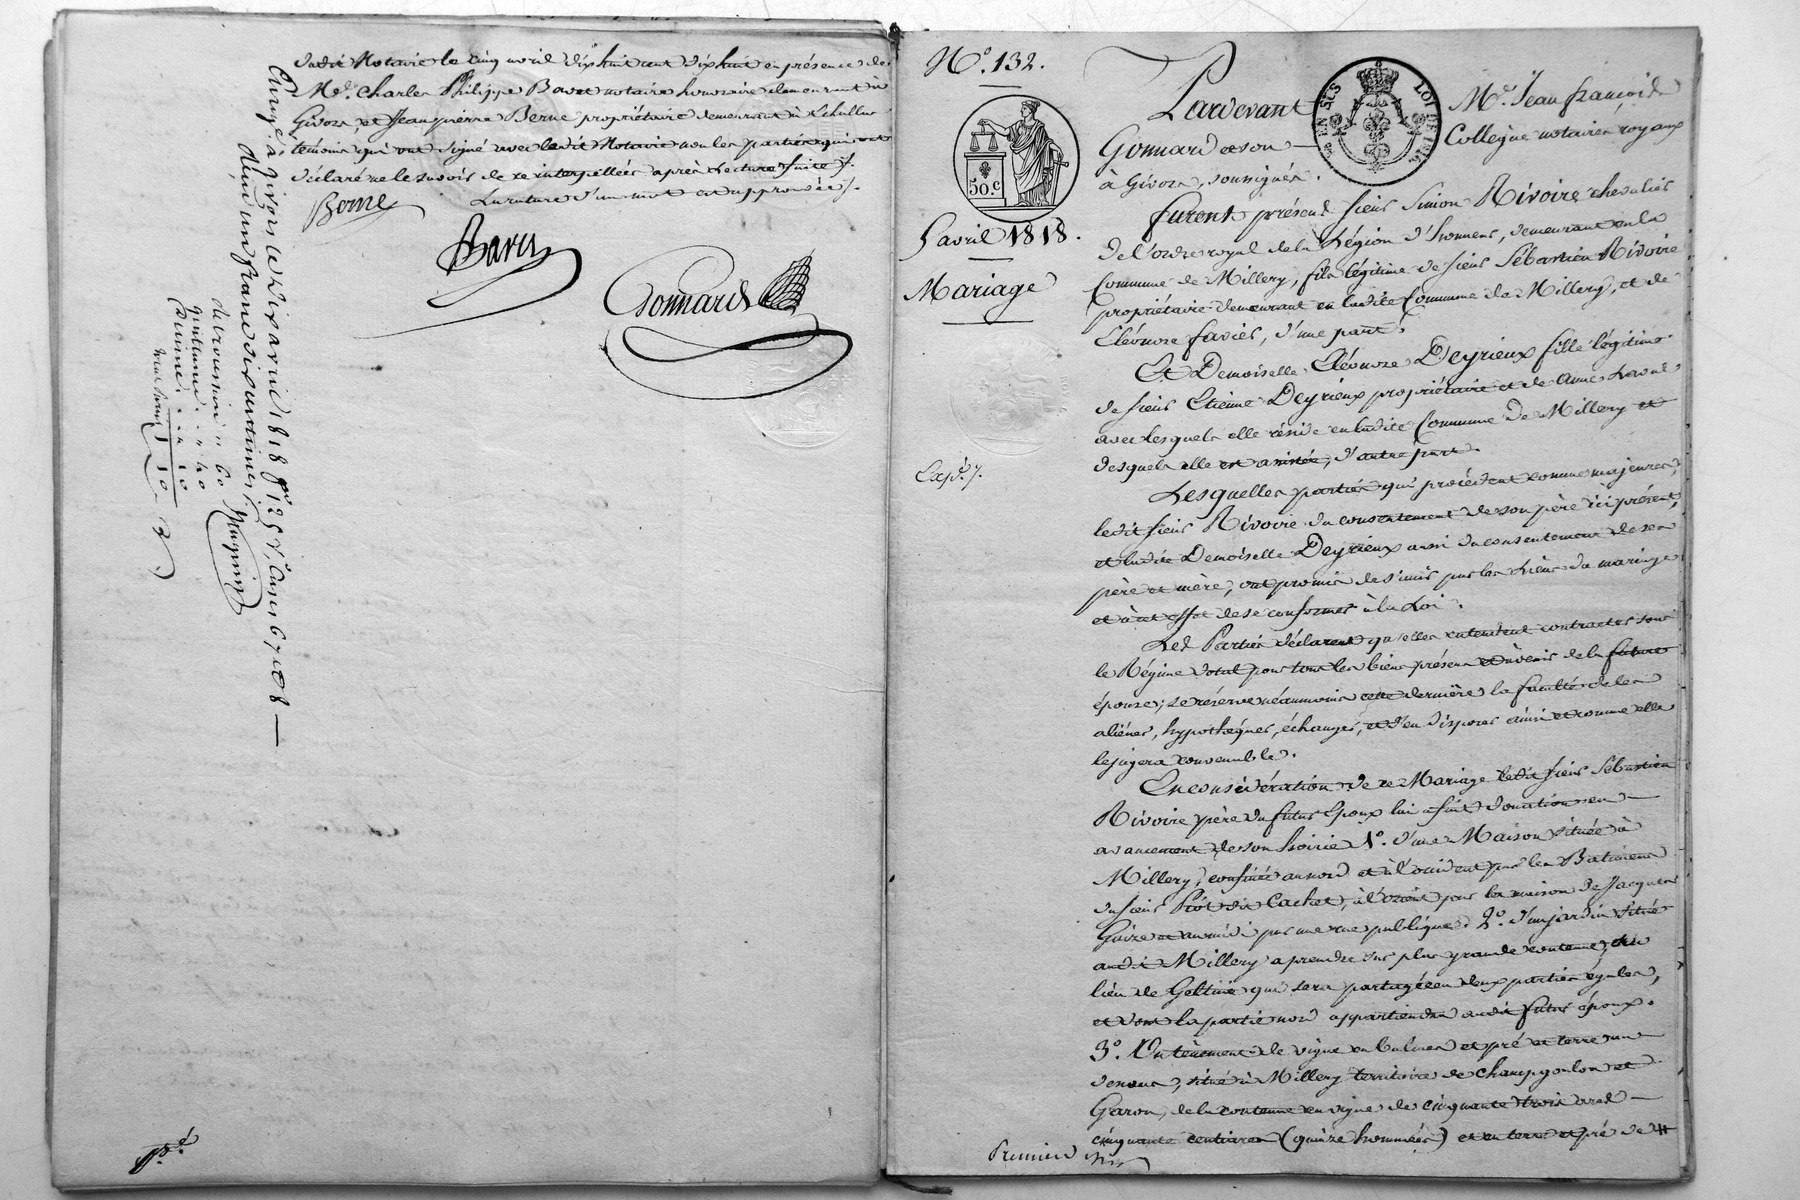 dudit Notaire le cinq avril dix huit cent dix huit en présence de
Mes. Charles Philippe Bavet notaire honoraire demeurant à
Givors, et Jean pierre Berne propriétaire demeurant à
témoins qui ont signé avec ledit Notaire non les parties qui ont
déclaré ne le savoir de ce interpellées après lecture faite /.
La rature d'un mot est approuvée /.
Berne
Bavet
Gonnard
Enregé à givors le dix avril 1818 fo 125 Vo Cases 6, 7 et 8
N°. 132.
50.c
5 avril 1818.
Mariage
Expé. /.
Pardevant Me. Jean françois
Gonnard et son Collègue notaires royaux
à Givors, soussignés.
furent présens sieur Simon Rivoire chevalier
de l'ordre royal de la Légion d'honneur, demeurant en la
Commune de Millery, fils légitime de sieur Sébastien Rivoire
propriétaire demeurant en ladite Commune de Millery, et de
Eléonore favier, d'une part.
Et Demoiselle Eléonore Deyrieux fille légitime
de sieur Etienne Deyrieux propriétaire et de Anne
avec lesquels elle réside en ladite Commune de Millery et
desquels elle est assistée, d'autre part.
Lesquelles parties qui procèdent comme majeures,
ledit sieur Rivoire du consentement de son père ici présent,
et ladite Demoiselle Deyrieux aussi du consentement de ses
père et mère, ont promis de s'unir par les liens du mariage
et à cet effet de se conformer à la Loi.
Les Parties déclarent qu'elles entendent contracter sous
le Régime dotal pour tous les biens présens et à venir de la future
épouse; se réserve néanmoins cette dernière la faculté de les
aliéner, hypothéquer, échanger, et d'en disposer ainsi et comme elle
le jugera convenable.
En considération de ce Mariage ledit sieur Sébastien
Rivoire père du futur Epoux lui a fait donation en
avancement de son hoirie 1°. d'une Maison située à
Millery, confinée au nord et à l'occident par les Batimens
du sieur Piot dit Cachet, à l'orient par la maison de Jacques
Guize et au midi par une rue publique. 2°. d'un jardin situé
audit Millery a prendre sur plus grande contenue, au
lieu de qui sera partagé en deux parties égales,
et dont la partie nord appartiendra audit futur époux.
3°. Un tènement de vigne en balmes et pré et terre au
dessous, situé à Millery territoire de champgoulon et
Garon, de la contenue en vigne de cinquante trois ares
cinquante centiares (quinze hommées) et en terre et pré de
Premier